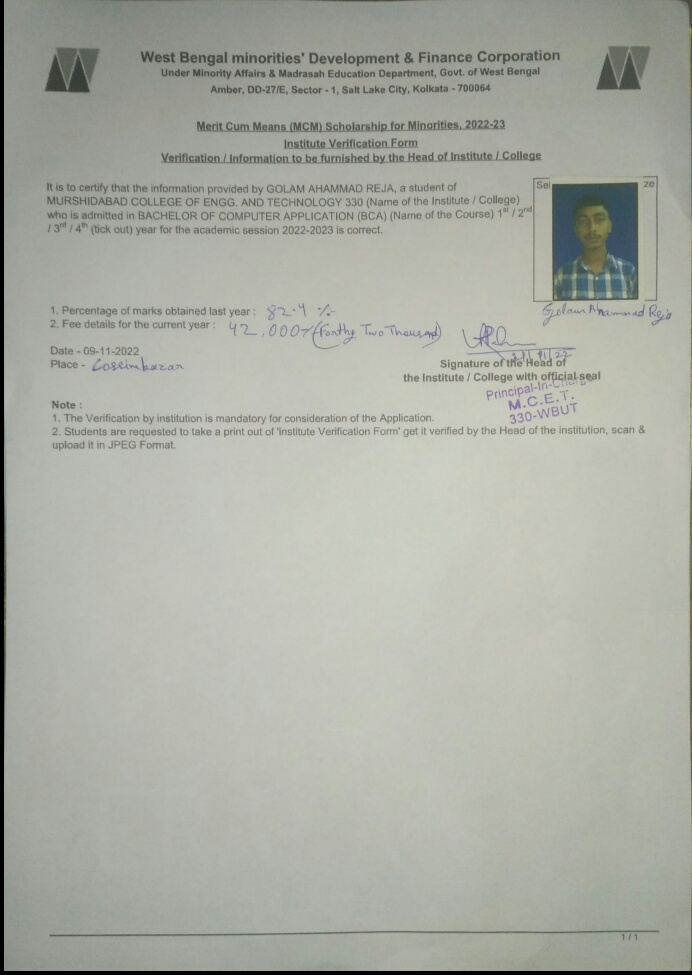 West Bengal minorities' Development & Finance Corporation
Under Minority Affairs & Madrasah Education Department, Govt. of West Bengal
Amber, DD-27/E, Sector - 1, Salt Lake City, Kolkata - 700064
Merit Cum Means (MCM) Scholarship for Minorities, 2022-23
Institute Verification Form
Verification / Information to be furnished by the Head of Institute / College
It is to certify that the information provided by GOLAM AHAMMAD REJA, a student of
MURSHIDABAD COLLEGE OF ENGG. AND TECHNOLOGY 330 (Name of the Institute / College)
who is admitted in BACHELOR OF COMPUTER APPLICATION (BCA) (Name of the Course) 1st / 2nd
/ 3rd / 4th (tick out) year for the academic session 2022-2023 is correct.
Sel ze
Golam Ahammad Reja
1. Percentage of marks obtained last year : 82.4 %
2. Fee details for the current year : 42,000/- (Forthy Two Thousand)
Date - 09-11-2022
Place - Cossimbazar
Signature of the Head of
the Institute / College with official seal
Principal-In-Charge
M.C.E.T.
330-WBUT
Note :
1. The Verification by institution is mandatory for consideration of the Application.
2. Students are requested to take a print out of 'institute Verification Form' get it verified by the Head of the institution, scan &
upload it in JPEG Format.
1 / 1